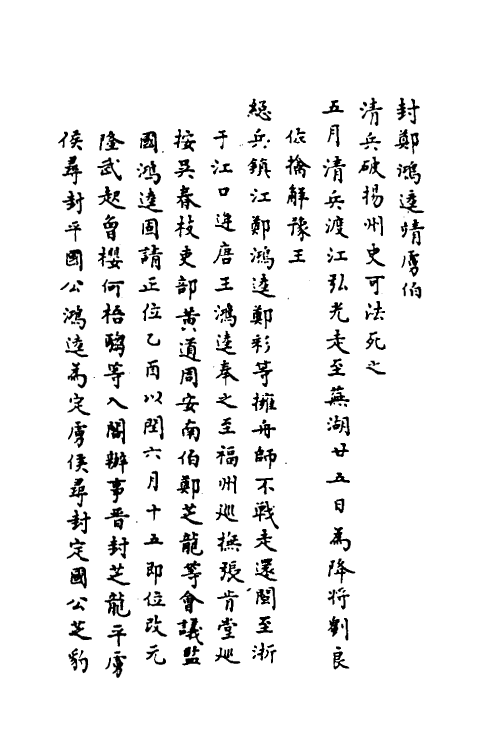 封鄭鴻逵靖虜伯
清兵破揚州史可法死之
五月清兵渡江弘光走至蕪湖廿五日為降將劉良
佐擒解豫王
總兵鎮江鄭鴻逵鄭彩等擁舟師不戰走還閩至浙
于江口迎唐王鴻逵奉之至福州廵撫張肯堂廵
按吳春枝吏部黃道周安南伯鄭芝龍等會議監
國鴻逵固請正位乙酉以閏六月十五即位改元
隆武起曾櫻何梧騶等入閣辦事晋封芝龍平虜
侯尋封平國公鴻逵為定虜侯尋封定國公芝豹